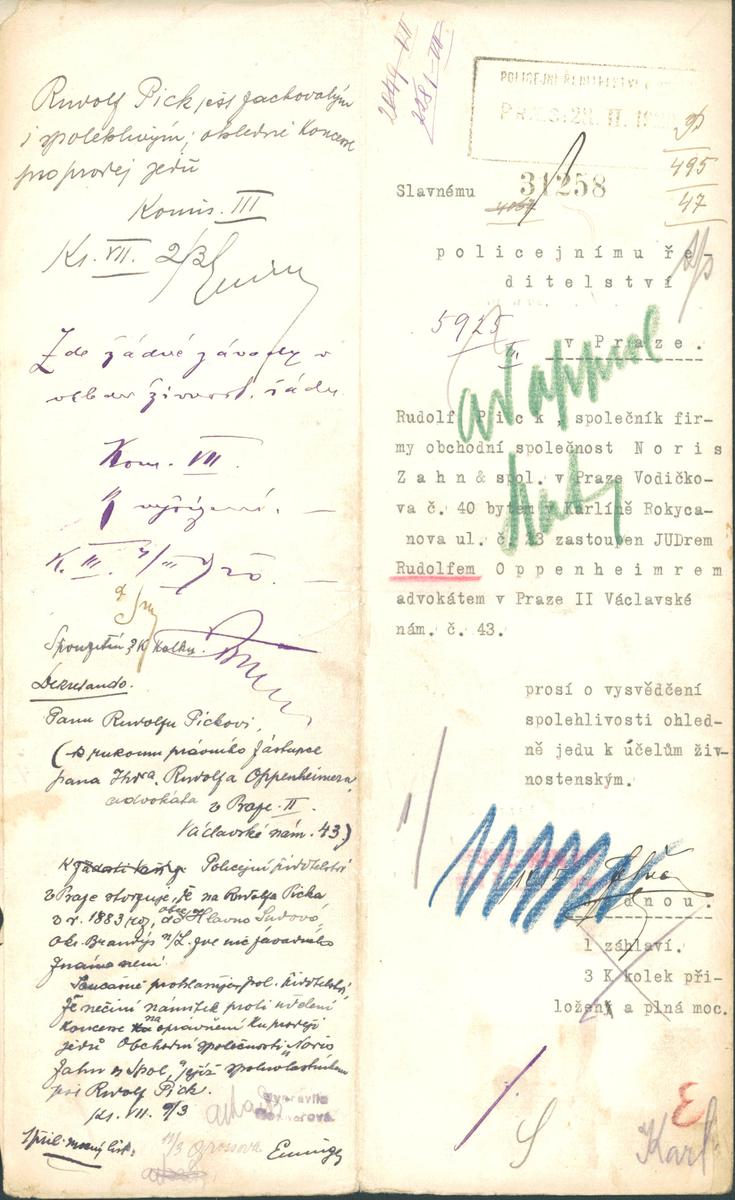 Rudolf Pick jest zachovalým
i spolehlivým, ohledně koncese
pro prodej jedů
Komis. III
Ks. VII. 2/3
Zde žádné závady v
oboru živnost. řádu.
Kom. VII.
K vyřízení. —
K. III.
Spouštění 3 K kolku.
Dekretando.
Panu Rudolfu Pickovi,
(k rukoum právního zástupce
pana JUDra. Rudolfa Oppenheimera,
advokáta v Praze. II.
Václavské nám. 43)
Policejní ředitelství
v Praze stvrzuje, že na Rudolfa Picka
v r. 1883 roz, obec Hlavno Sudovo,
Okr. Brandýs n/L. zde nic závadného
známo není.
Současně prohlašuje pol. ředitelství,
že nečiní námitek proti udělení
koncese na oprávnění ku prodeji
jedů Obchodní společnosti „Noris
Zahn & Spol", jejíž spoluvlastníkem
jest Rudolf Pick.
Ks. VII. 9/3
Vypravila
11/3 Grossová
1 příl.
2081-VII
POLICEJNÍ ŘEDITELSTVÍ
PRAES: 28. II.
495
47
Slavnému 31258
policejnímu ře-
ditelství
5925
III
v Praze.
Rudolf Pick, společník fir-
my obchodní společnost Noris
Zahn & spol. v Praze Vodičko-
va č. 40 bytem v Karlíně Rokyca-
nova ul. č. 23 zastoupen JUDrem
Rudolfem Oppenheimrem
advokátem v Praze II Václavské
nám. č. 43.
prosí o vysvědčení
spolehlivosti ohled-
ně jedu k účelům živ-
nostenským.
dnou.
1 záhlaví.
3 K kolek při-
ložen a plná moc.
Karl